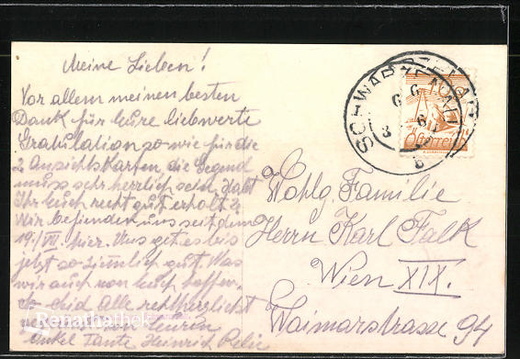 Meine Lieben!
Vor allem meinen besten
Dank für Eure liebwerte
Gratulation sowie für die
2 Ansichtskarten, die Gegend
muss sehr herrlich sein, dass
Ihr Euch recht gut erholt?
Wir befinden uns seit dem
19./VII. hier. Uns get es bis
jetzt so ziemlich gut. Was
wir auch von Euch hoffen.
So seid alle recht herzlichst
von Euren
Onkel Tante Heinrich
SCHWARZENAU
Österreich
Wohlg. Familie
Herrn Karl Falk
Wien XIX.
Waimarstrasse 94
Renathathek